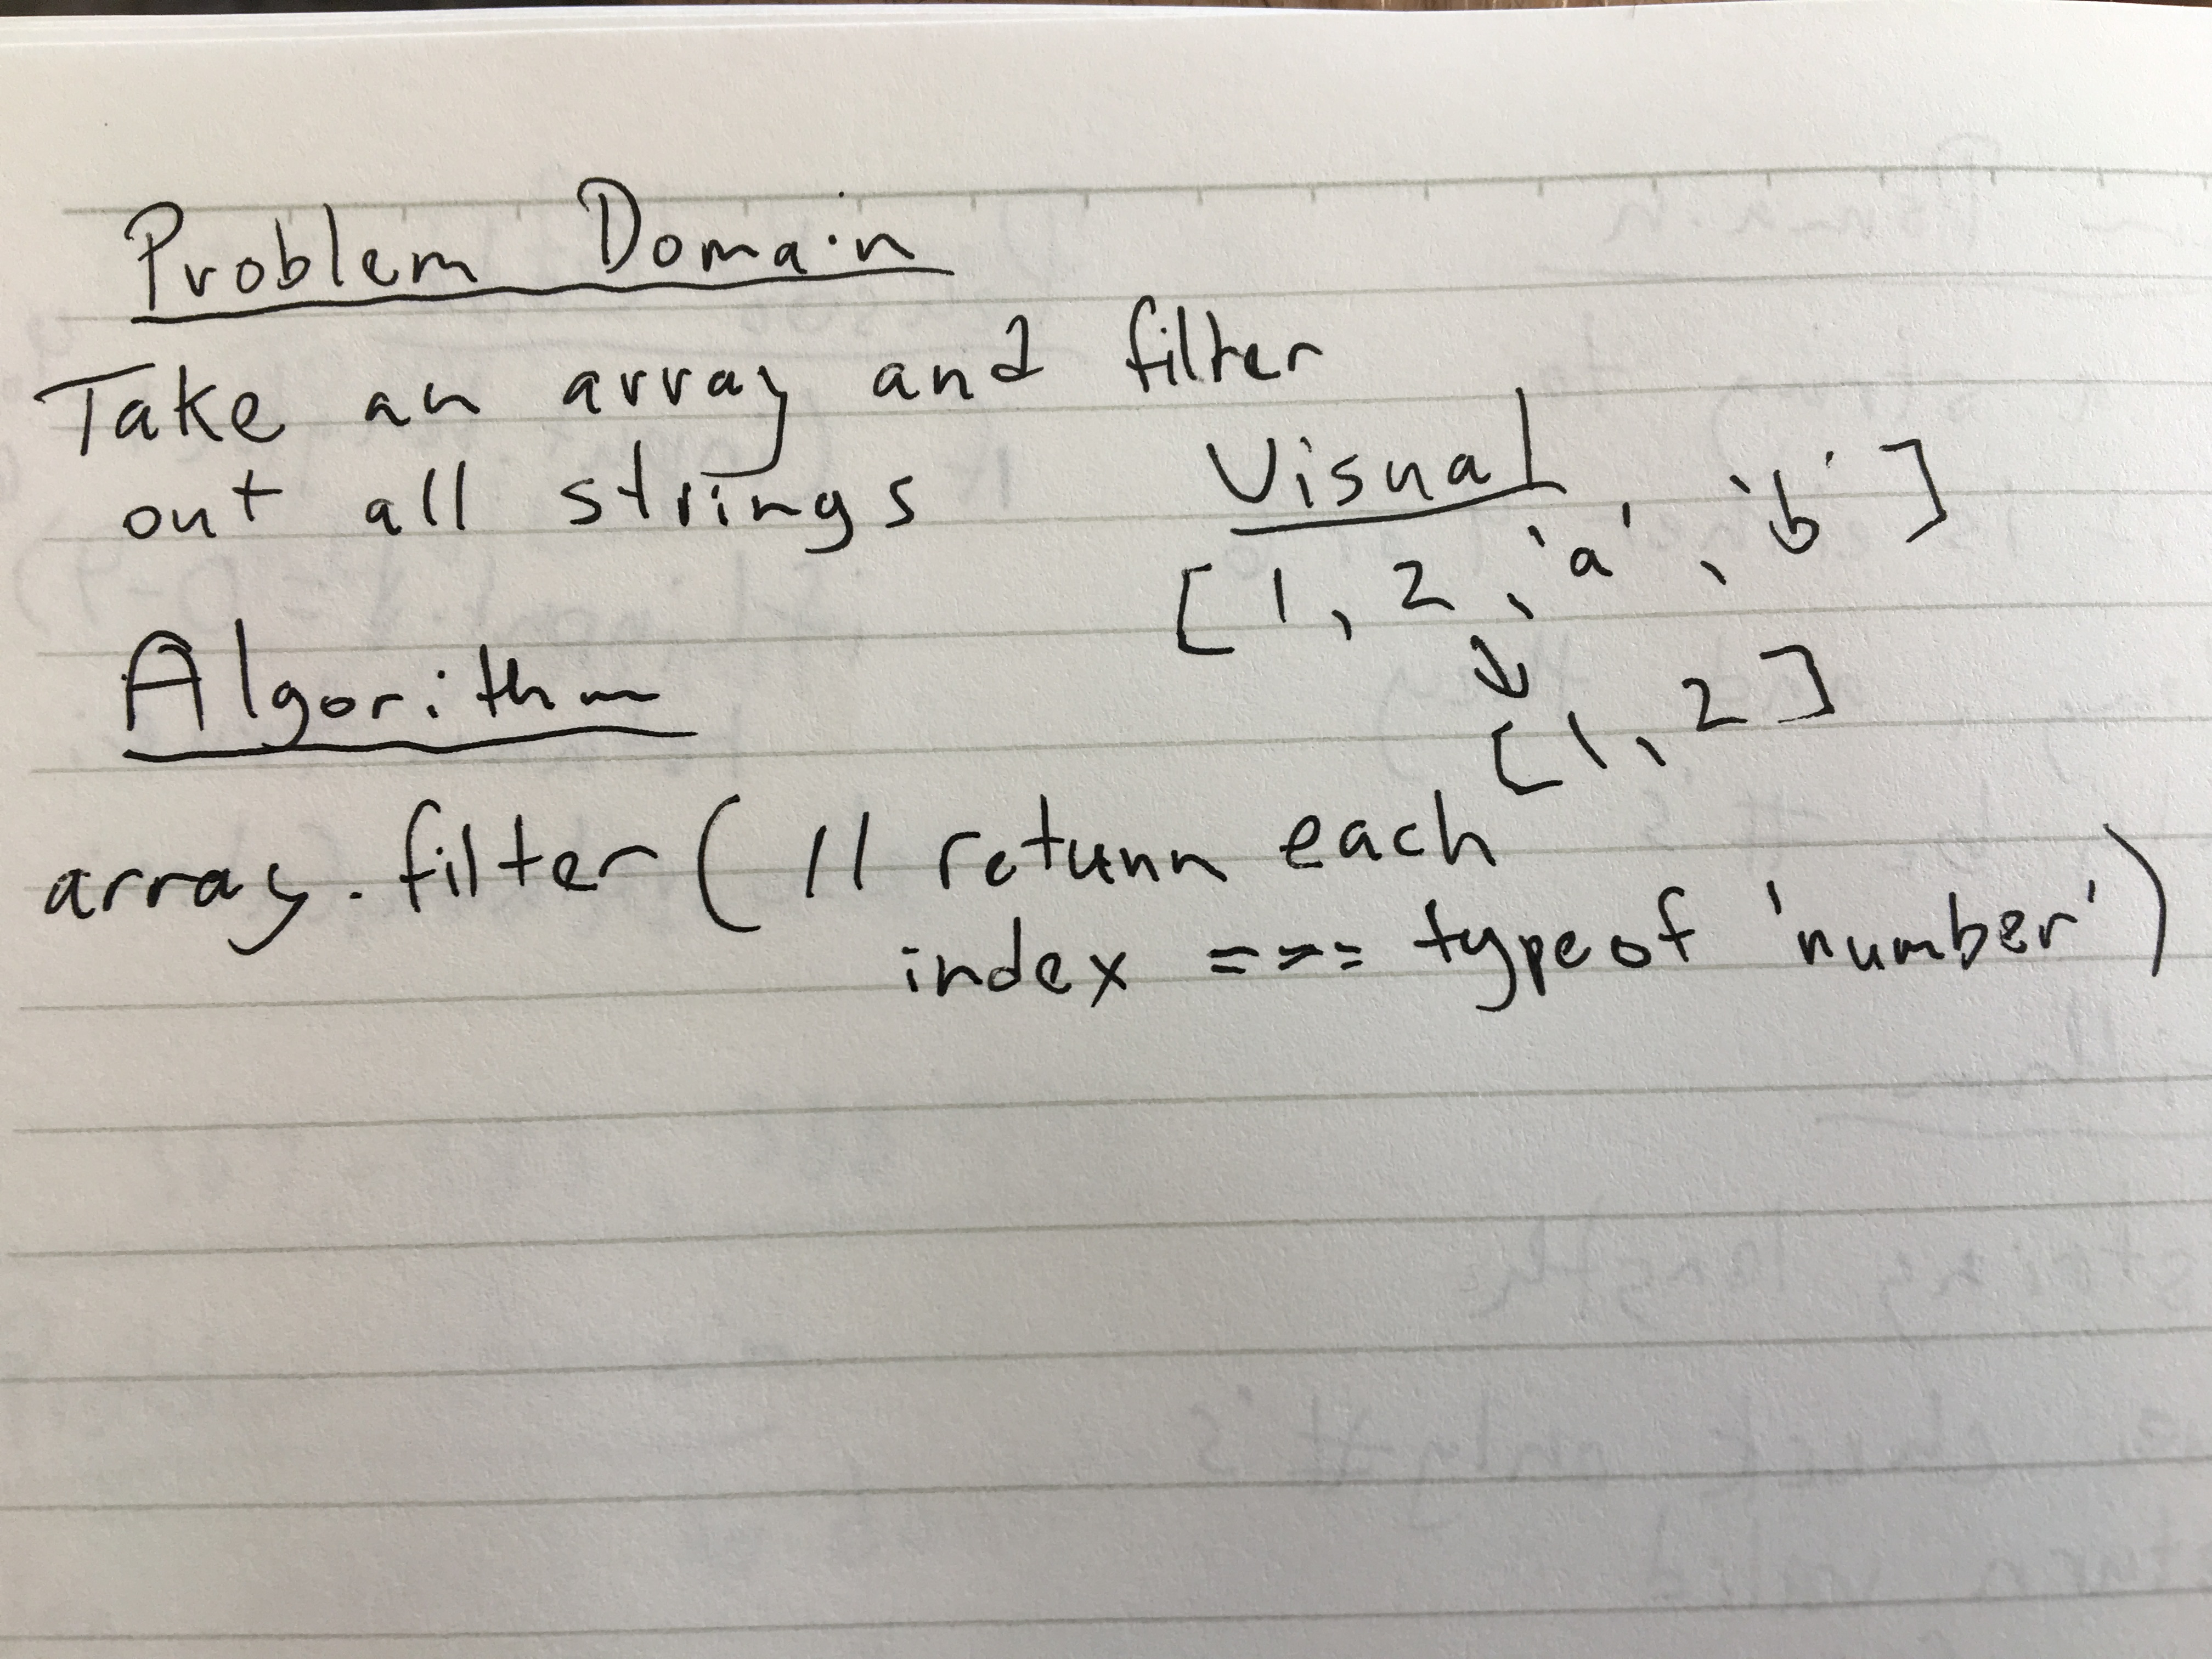 Problem Domain
Take an array and filter
out all strings
Visual
[1, 2, 'a', 'b']
↓
[1, 2]
Algorithm
array.filter( // return each
index === typeof 'number')